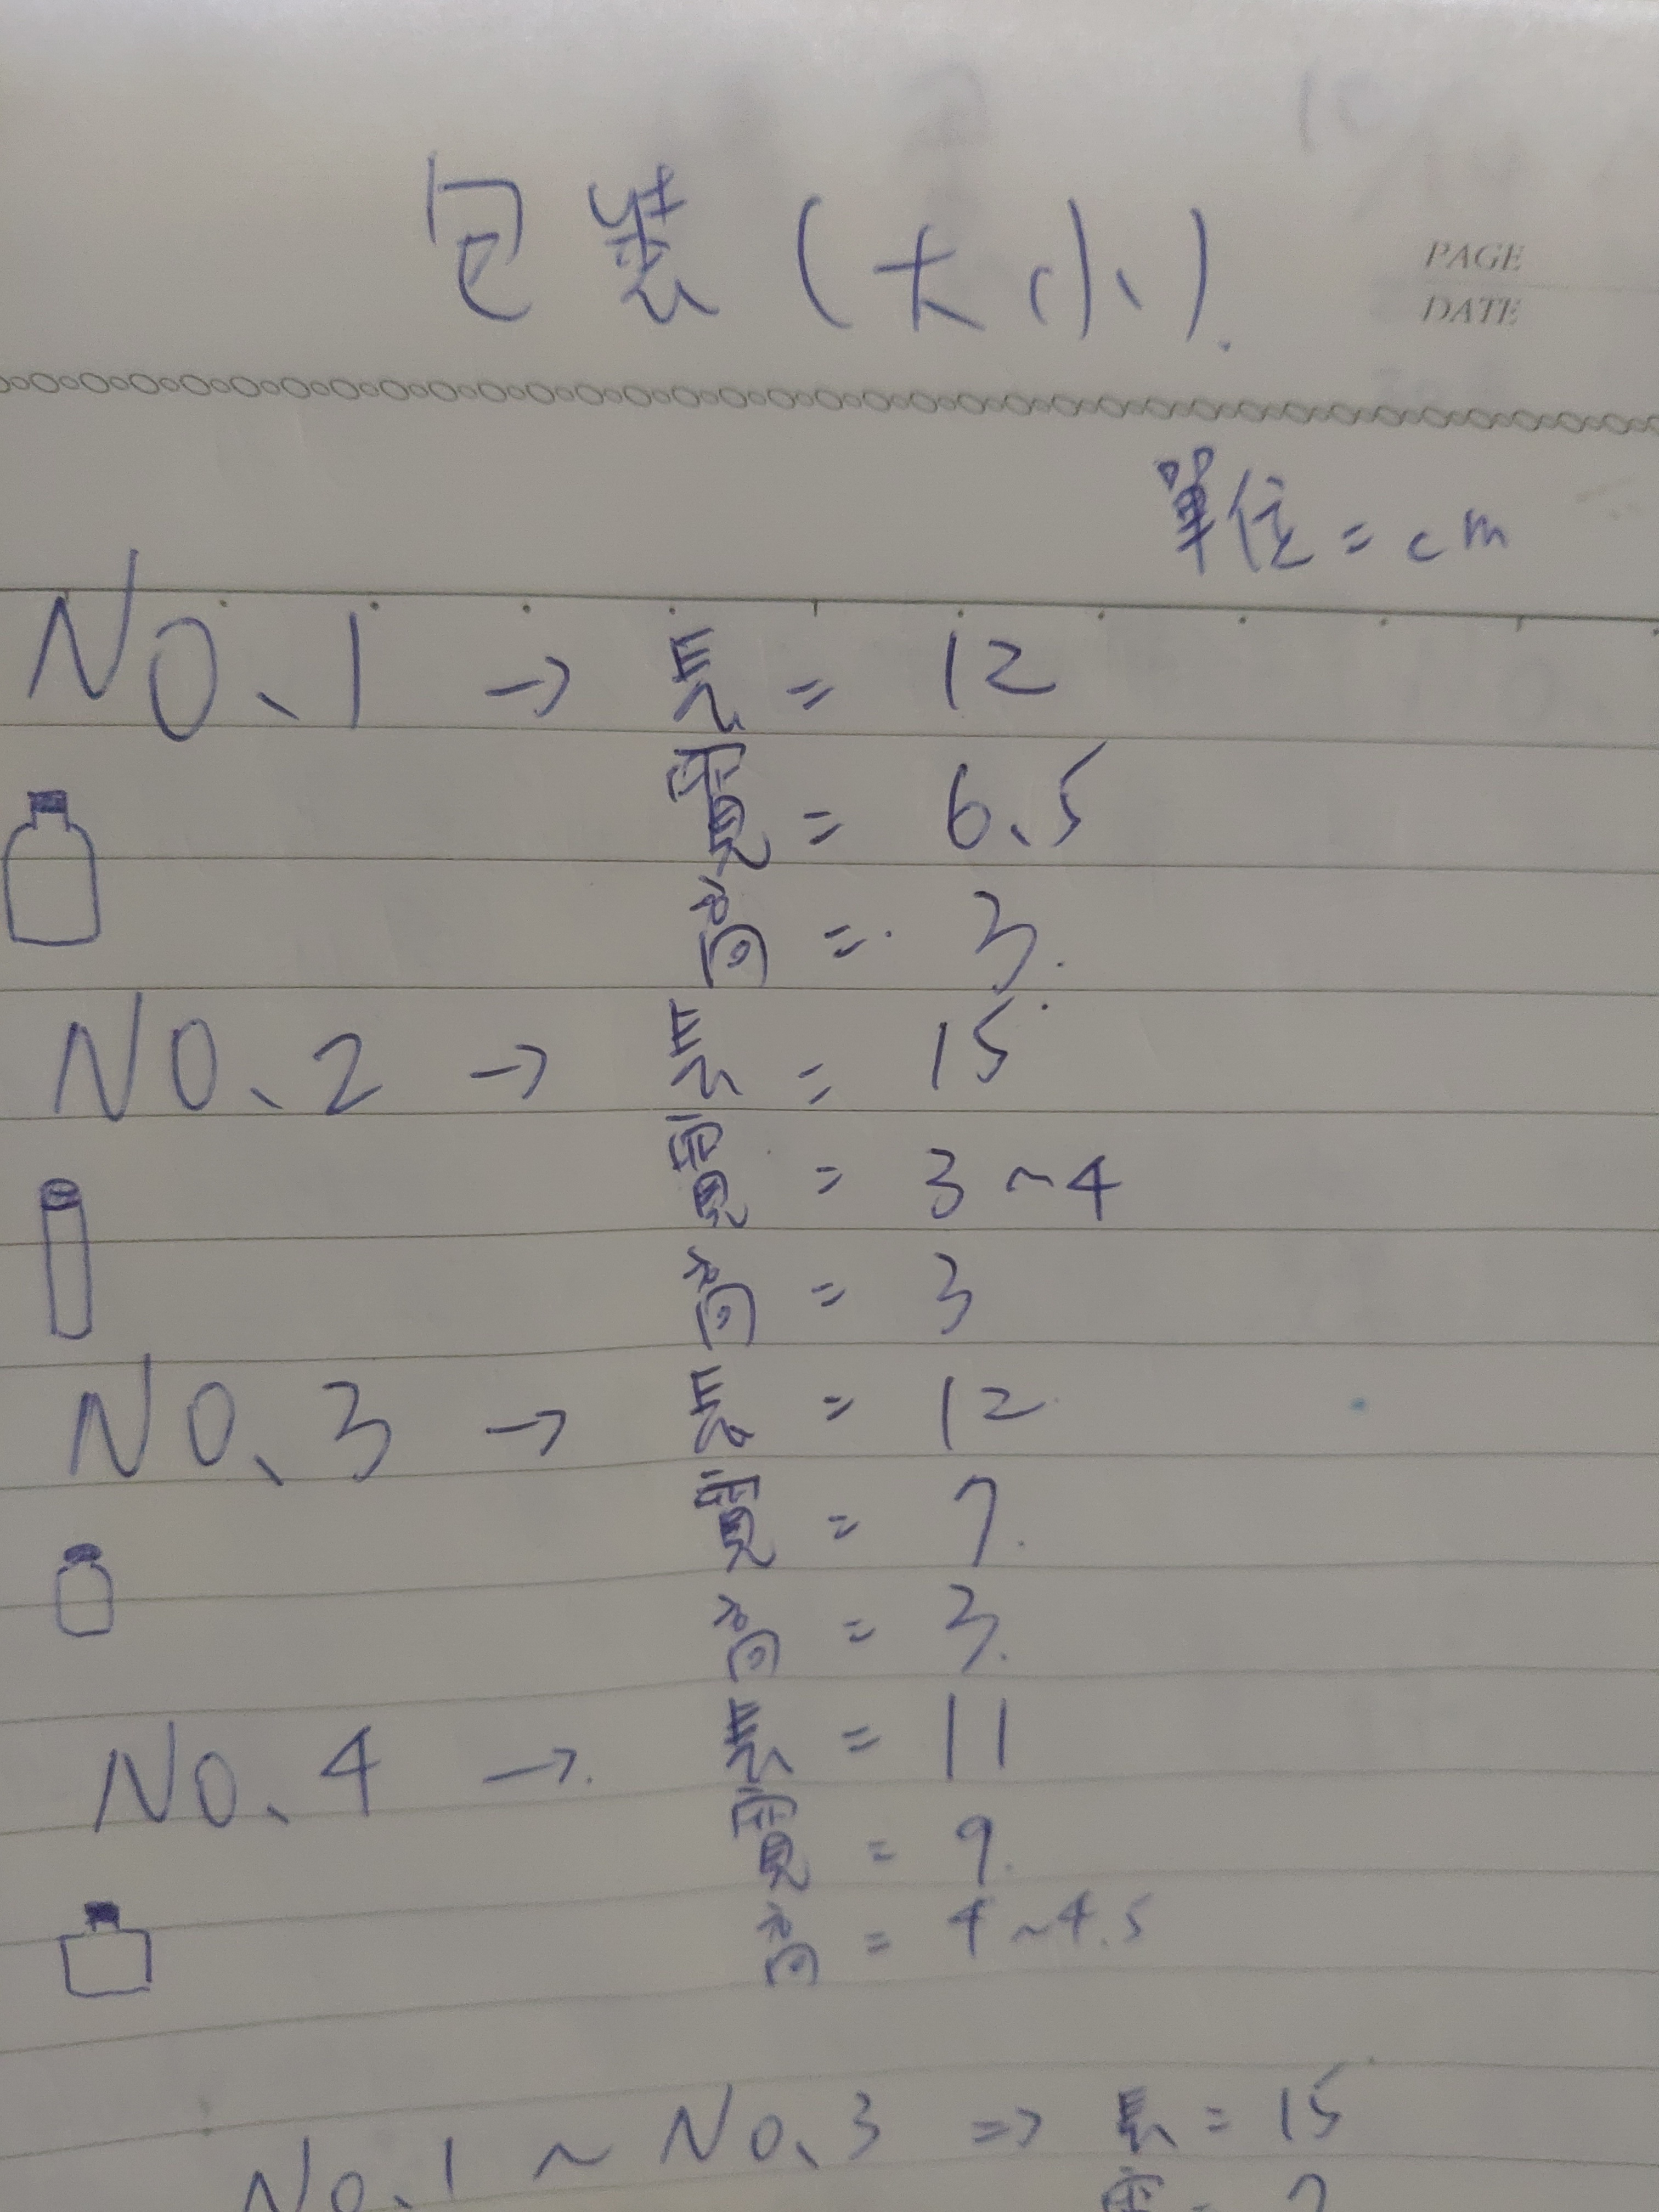 包裝(大小).
PAGE
DATE
單位=cm
NO、1 → 長= 12
寬= 6、5
高= 3.
NO、2 → 長= 15
寬= 3~4
高= 3
NO、3 → 長= 12
寬= 7.
高= 3.
NO、4 → 長= 11
寬= 9.
高= 4~4.5
No、1 ~ No、3 => 長=15